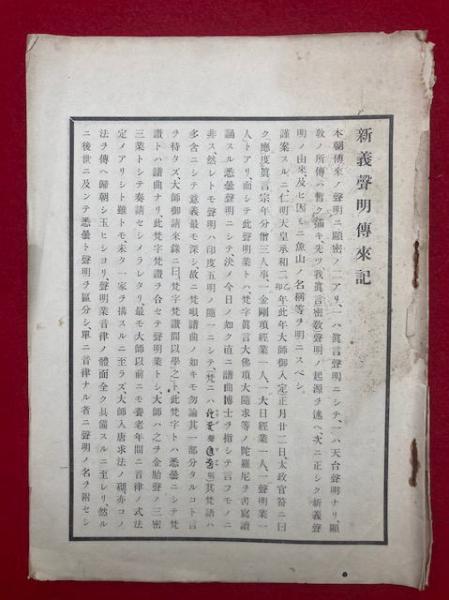 新義聲明傳來記
本朝傳來ノ聲明ニ顯密ノ二アリ、一ハ眞言聲明ニシテ、一ハ天台聲明ナリ、顯
敎ノ所傳ハ暫ク措キ先ツ我眞言密敎聲明ノ起源ヲ述ヘ、次ニ正シク新義聲
明ノ由來及ヒ因ミニ魚山ノ名稱等ヲ明ニスベシ、
謹案スルニ、仁明天皇承和二乙卯年此年大師御入定正月廿二日、太政官符ニ曰
ク、應度眞言宗年分僧三人事、一金剛頂經業一人、一大日經業一人、一聲明業一
人、トアリ、而シテ此聲明業トハ、梵字眞言大佛頂大隨求等ノ陀羅尼ヲ書寫讀
誦スル悉曇聲明ニシテ、決メ今日ノ如ク直ニ譜曲博士ヲ指シテ言フモノニ
非ス、然レトモ聲明ハ印度五明ノ隨一ニシテ、梵ニハ其梵語ハ
多含ニシテ意義最モ深シ、故ニ梵唄譜曲ノ如キモ勿論其一部分タルコト言
ヲ待タズ、大師御請來錄ニ曰、梵字梵讃間以學之ト、此梵字トハ悉曇ニシテ梵
讃トハ譜曲ナリ、此梵字梵讃ヲ合セテ聲明業トシ、大師ハ之ヲ金胎聲ノ三密
三業トシテ奏請セシメラレタリ、最モ大師以前ニモ養老年間ニ音律ノ式法
定メアリシト雖トモ、未タ一家ヲ搆スルニ至ラズ、大師入唐求法ノ砌亦コノ
法ヲ傳ヘ歸朝シ玉ヒシヨリ、聲明業音律ノ體面全ク具備スルニ至レリ、然ル
ニ後世ニ及ンテ悉曇ト聲明ヲ區分シ、單ニ音律ナル者ニ聲明ノ名ヲ附セシ